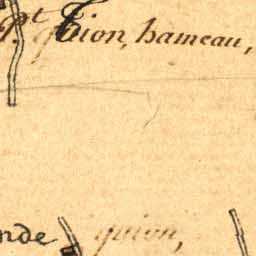 Pt Quion, hameau,
nde quion,